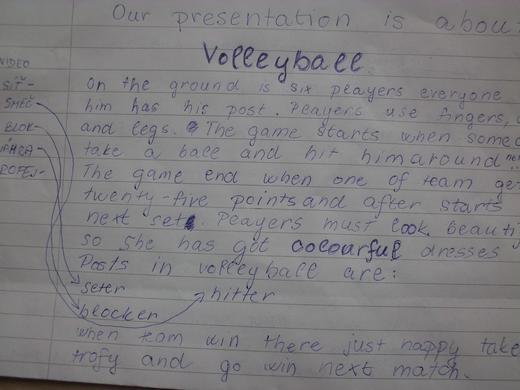 Our presentation is abou
Volleyball.
VIDEO
SÍŤ-
SMEČ
BLOK-
On the ground is six players everyone
him has his post. Players use fingers,
and legs. The game starts when someo
take a ball and hit him around
The game end when one of team ge
twenty-five points and after starts
next set. Players must look beauti
so she has got colourful dresses
Posts in volleyball are:
seter
hitter
blocker
when team win there just happy take
trofy and go win next match.